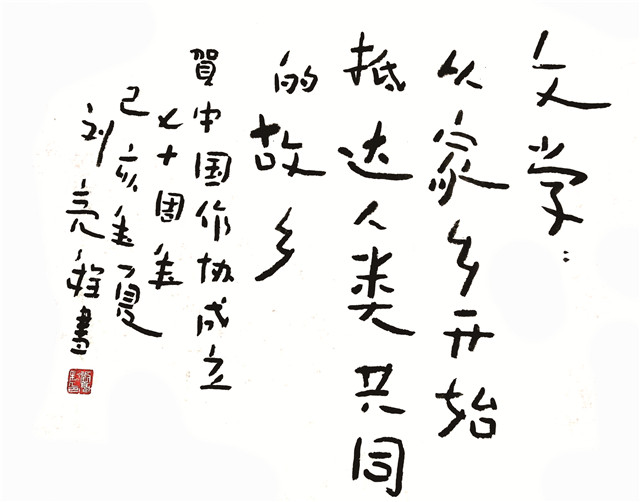 文学：
从家乡开始
抵达人类共同
的故乡
賀中国作协成立
七十周年
己亥年夏
刘亮程書